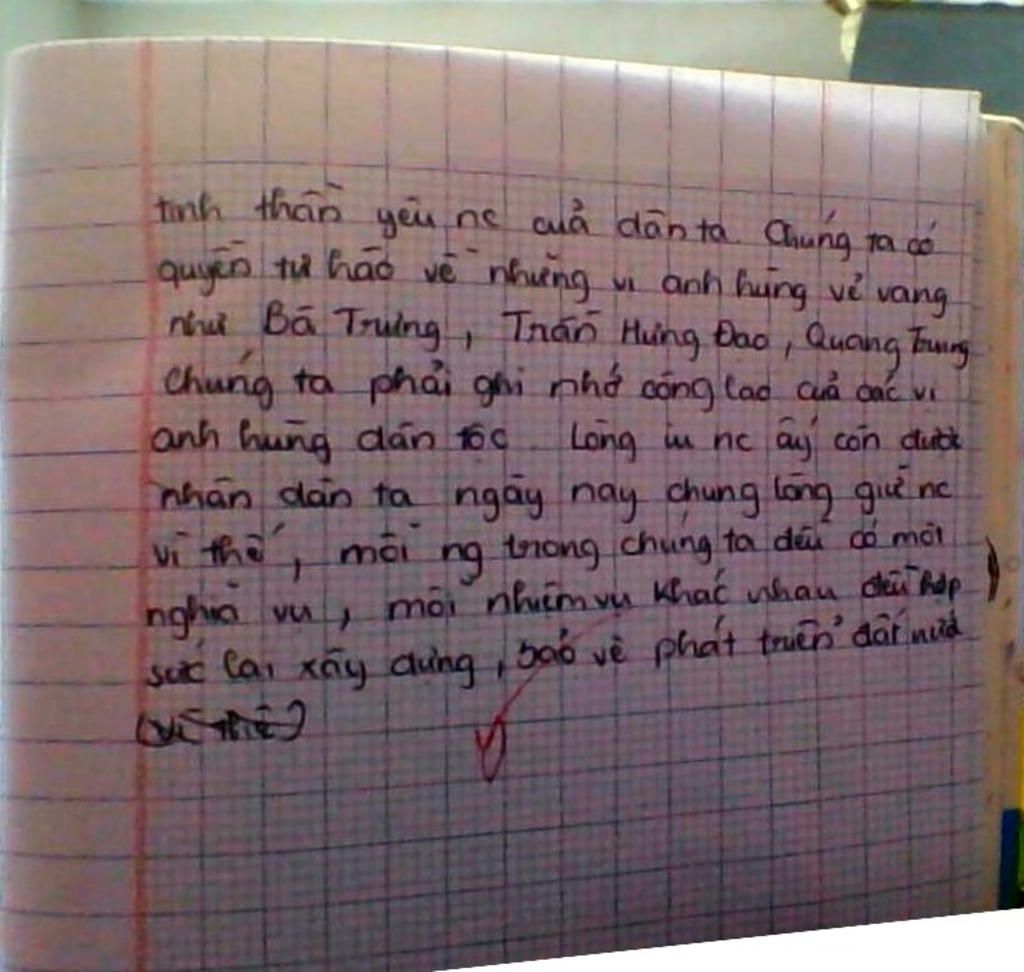 tinh thần yêu nc của dân ta. Chúng ta có
quyền tự hào về những vị anh hùng vẻ vang
như Bà Trưng, Trần Hưng Đạo, Quang Trung
Chúng ta phải ghi nhớ công lao của các vị
anh hùng dân tộc. Lòng iu nc ấy còn được
nhân dân ta ngày nay chung lòng giữ nc
vì thế, mỗi ng trong chúng ta đều có mỗi
nghĩa vụ, mỗi nhiệm vụ khác nhau đều hợp
sức lại xây dựng, bảo vệ phát triển đất nước
(vì thế)